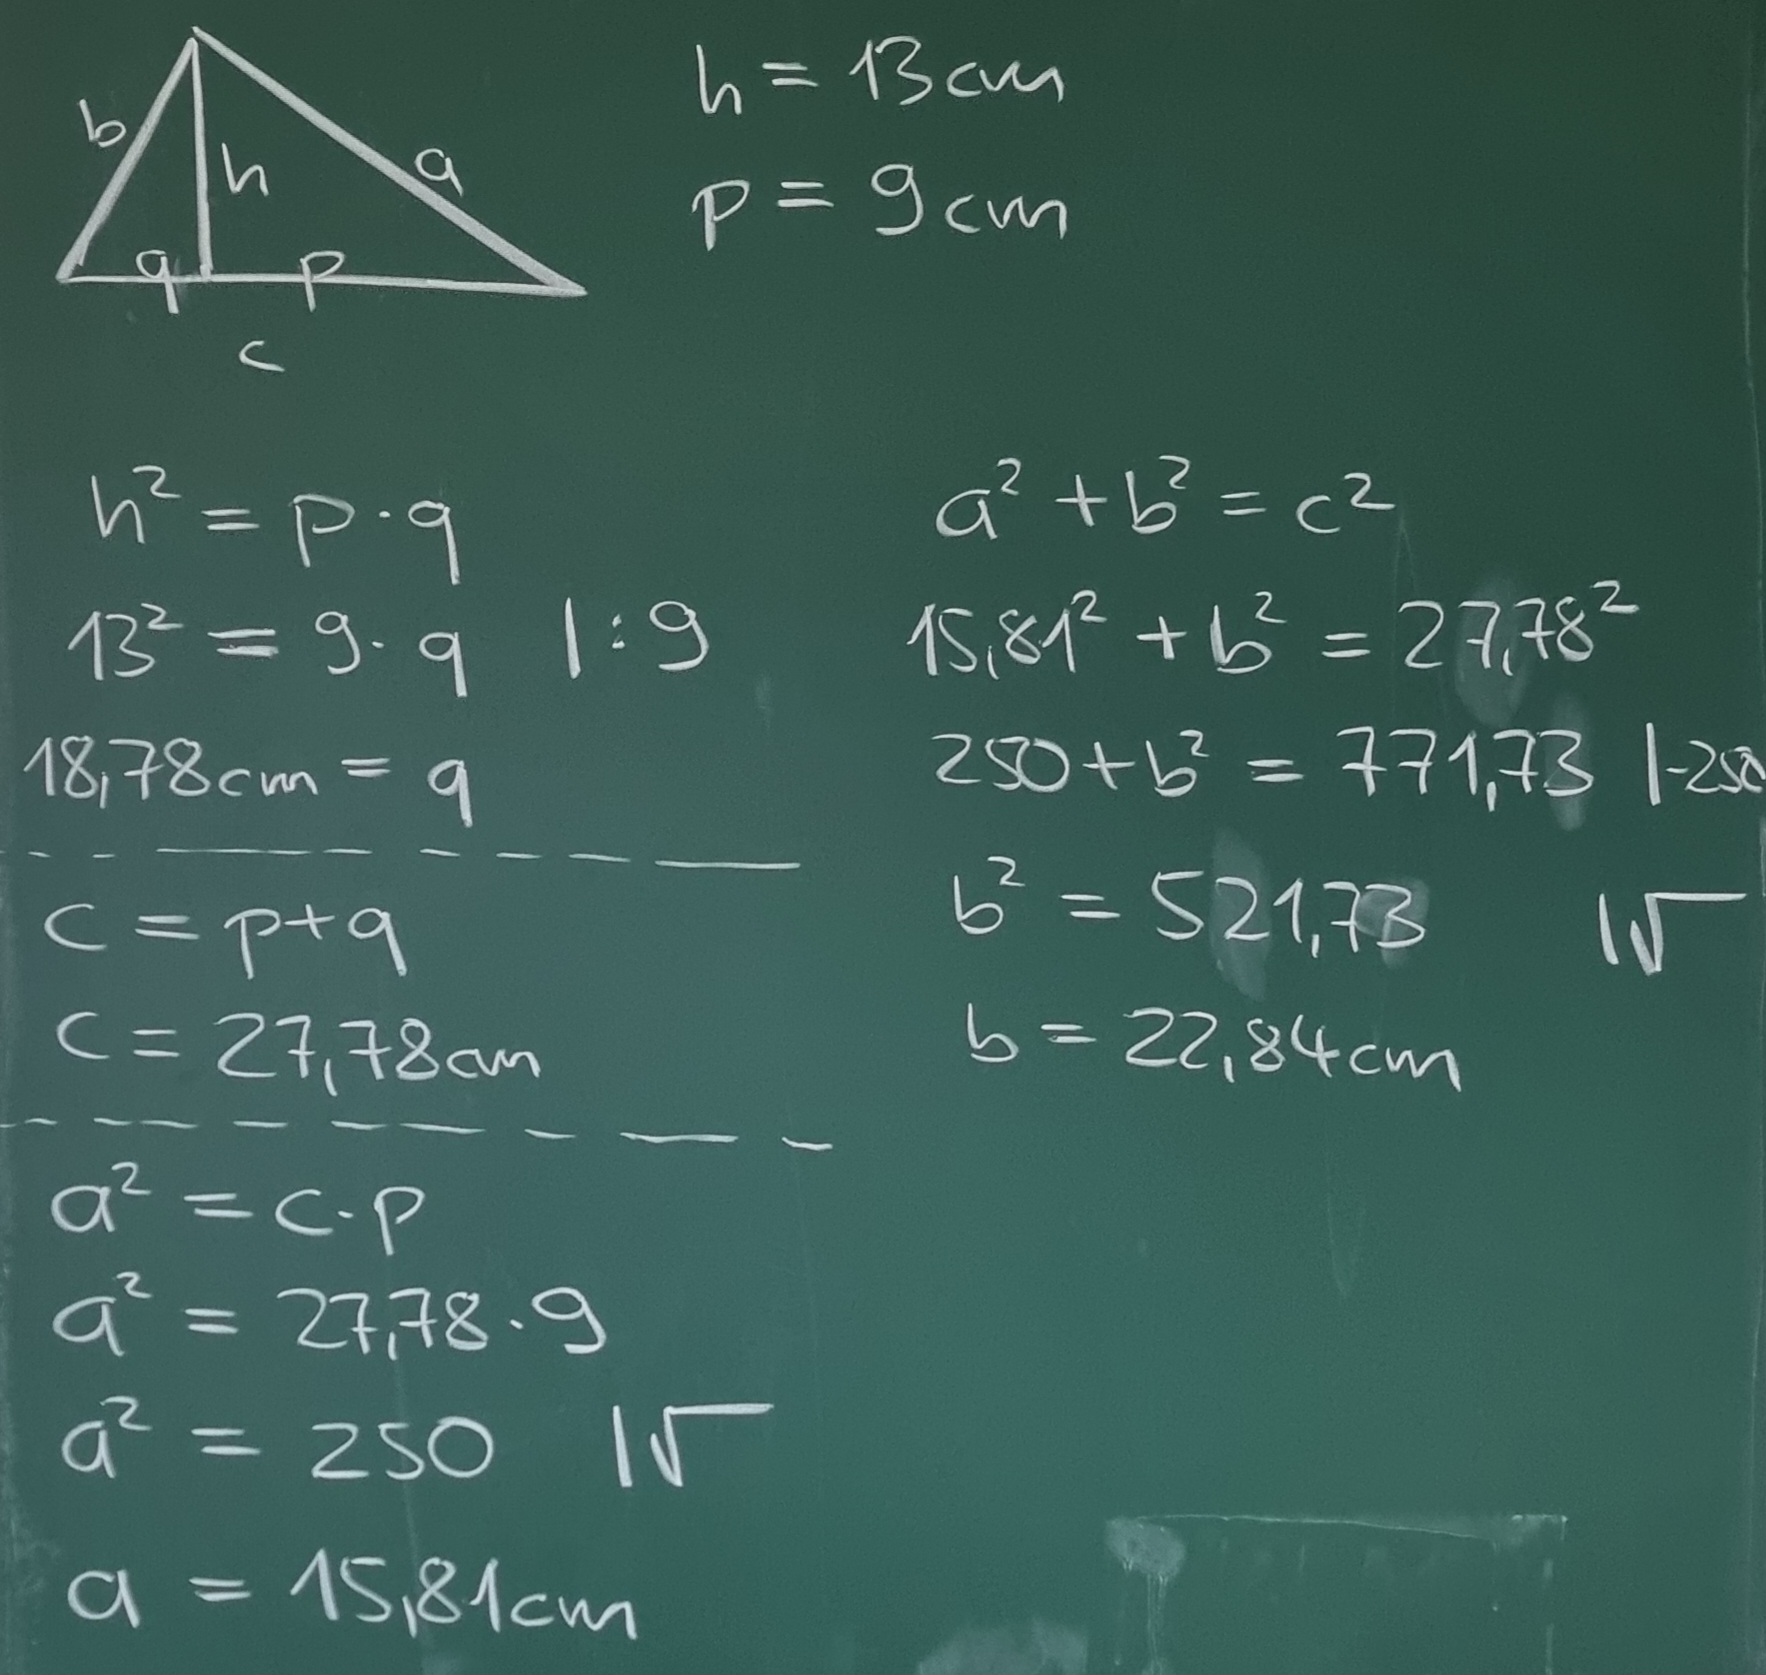 b
h
a
q
p
c
h = 13cm
p = 9cm
h² = p · q
13² = 9 · q |:9
18,78cm = q
c = p+q
c = 27,78cm
a² = c · p
a² = 27,78 · 9
a² = 250 |√
a = 15,81cm
a² + b² = c²
15,81² + b² = 27,78²
250 + b² = 771,73 |-250
b² = 521,73 |√
b = 22,84cm